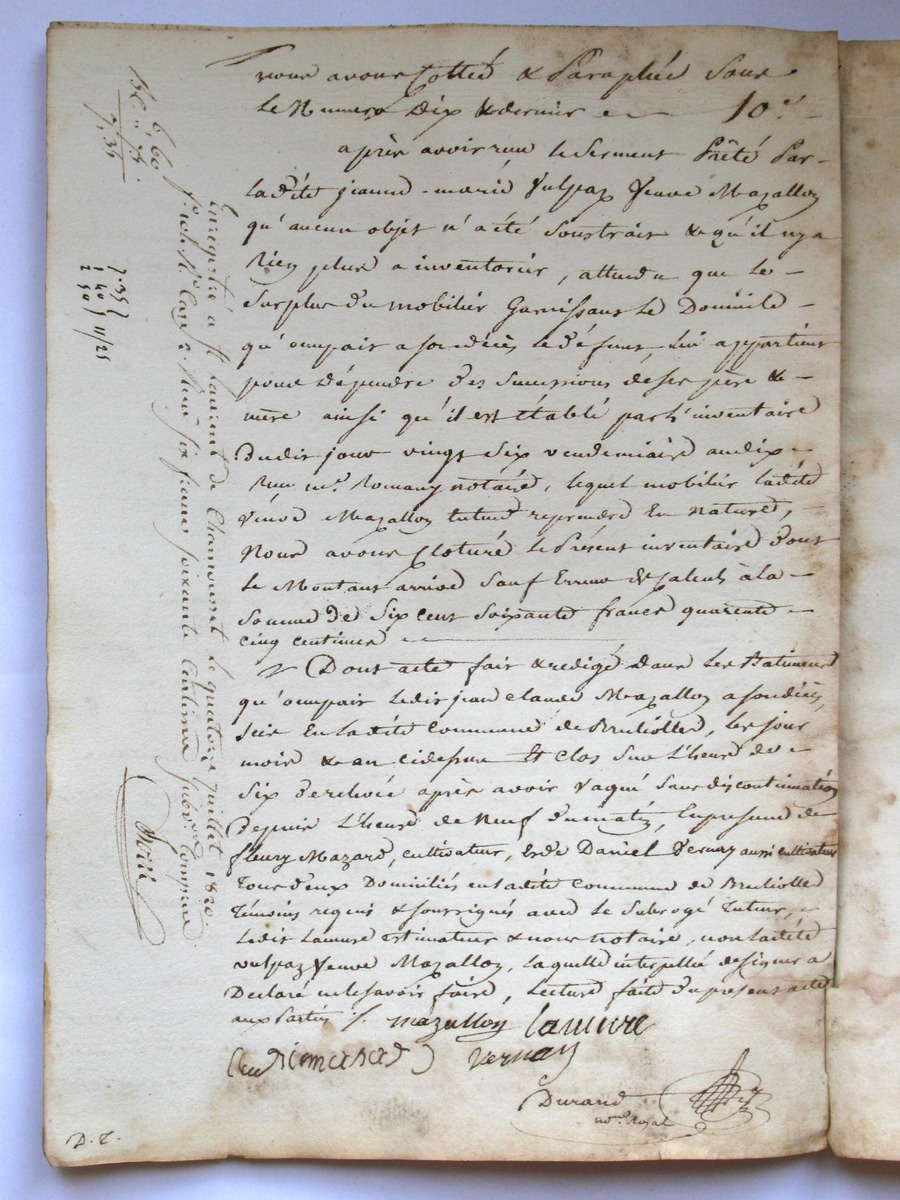 nous avons Cotted & Paraphée Sous
le Numero Dix & dernier 10.e
après avoir reçu le serment Prêté Par
ladite jeanne-marie Vulpaz Veuve Mazallon
qu'aucun objet n'a été Soustrait & qu'il n'y a
Rien plus a inventorier, attendu que le
Surplus du mobilier Garnissant Le Domicile
qu'occupait a son décès le défunt, lui appartient
pour dépendre des Successions de ses père &
mère ainsi qu'il est Etabli par L'inventaire
Dudit jour vingt Six vendemiaire an dix
Reçu m.e Romany notaire, lequel mobilier ladite
Veuve Mazallon reprendre En nature,
Nous avons Cloturé le Présent inventaire Dont
le Montant arrive Sauf Erreur de Calcul à la
Somme de Six cent Soixante francs quarente
cinq centimes
Dont acte fait & redigé Dans Les Batimens
qu'occupait Ledit jean Claude Mazallon a son décès,
Sis En ladite Commune de Brulliolles, les jour
mois & an cidessus Et Clos Sur L'heure de
Six De relevée après avoir Vaqué Sans discontinuation
Depuis L'heure de Neuf Du matin, En presence de
fleury Mazard, cultivateur, & de Daniel Vernay aussi cultivateur
Tous deux Domiciliés en ladite Commune de Brulliolles
Témoins requis & soussignés avec le Subrogé Tuteur,
Ledit Lamure Estimateur & nous notaire, non ladite
Vulpaz Veuve Mazallon, laquelle interpellée de signer a
Declaré ne le savoir faire, Lecture faite Du present acte
aux Parties /. mazallon lamure
vernay
Durand
not.re Royal
D. T.
Enregistré à St Laurent de Chamousset le quatorze juillet 1820.
f.o R.o Case Reçu six francs soixante Centimes subv.on Comprise
6, 60
7, 35
7. 35
1 40
2 50
11/25